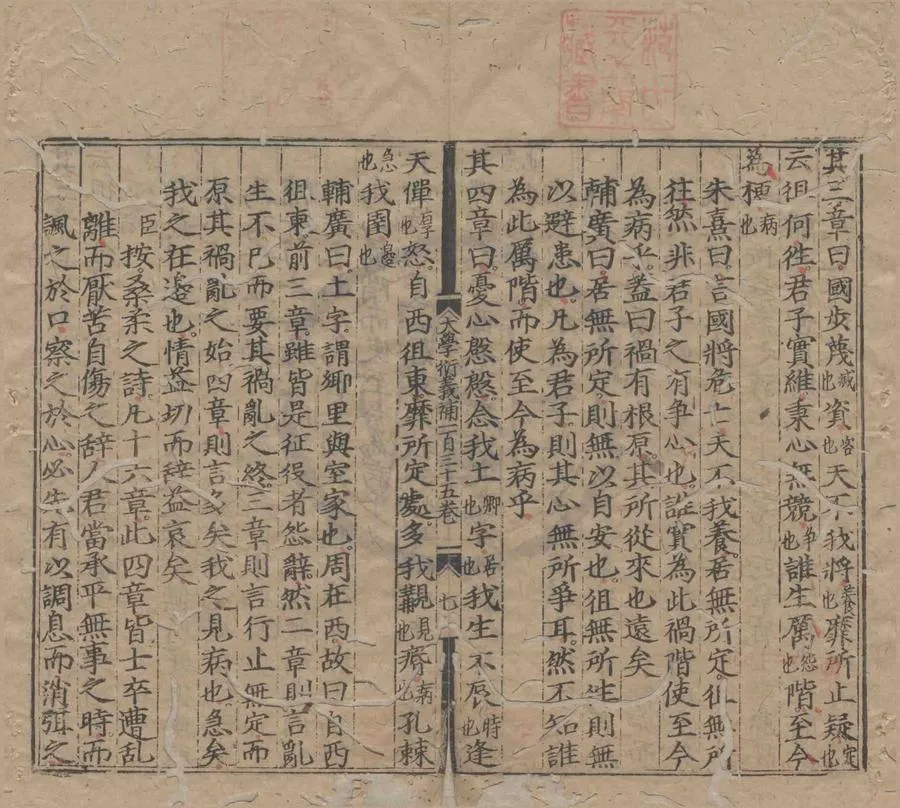 其三章曰國步蔑滅也資咨也天不我將養也靡所止疑定也
云徂何徃君子實維秉心無競爭也誰生厲怨也階至今
為梗病也
朱熹曰言國將危亡天不我養居無所定徂無所
往然非君子之有爭心也誰實為此禍階使至今
為病乎蓋曰禍有根原其所從來也遠矣
輔廣曰居無所定則無以自安也徂無所徃則無
以避患也凡為君子則其心無所爭耳然不知誰
為此厲階而使至今為病乎
其四章曰憂心慇慇念我土鄉也字居也我生不辰時也逢
大學衍義補一百三十五卷 七
天僤厚也怒自西徂東靡所定處多我覯見也痻病也孔棘
急也我圉邊也
輔廣曰土字謂鄉里與室家也周在西故曰自西
徂東前三章雖皆是征役者怨辭然二章則言亂
生不已而要其禍亂之終三章則言行止無定而
原其禍亂之始四章則言多矣我之見病也急矣
我之在邊也情益切而辭益哀矣
臣按桑柔之詩凡十六章此四章皆士卒遭亂
離而厭苦自傷之辞人君當承平無事之時而
諷之於口察之於心必先有以調息而消弭之